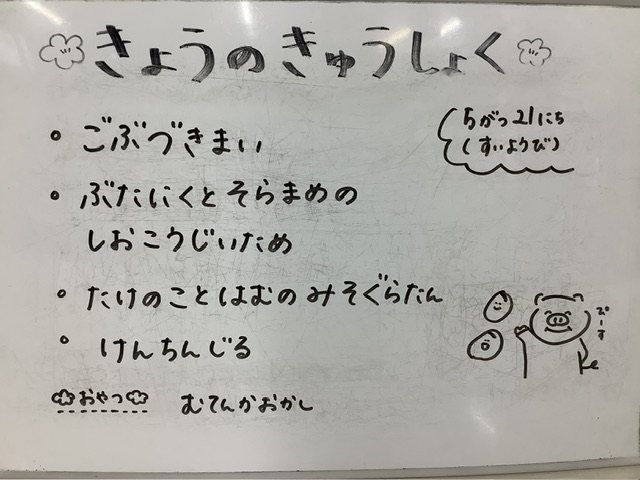 きょうのきゅうしょく
5がつ21にち
(すいようび)
・ごぶづきまい
・ぶたにくとそらまめの
しおこうじいため
・たけのことはむのみそぐらたん
・けんちんじる
おやつ むてんかおかし
ぶーす